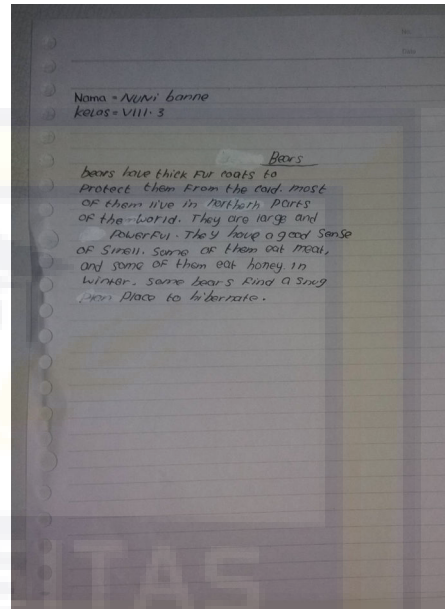 No.
Date
Nama = Nuni banne
kelas = VIII. 3
Bears
bears have thick Fur coats to
Protect them From the cold. most
of them live in northern Parts
of the world. They are large and
Powerful. They have a good Sense
of Smell. Some of them eat meat,
and some of them eat honey. In
winter. some bears Find a snug
Place to hibernate.
ITAS